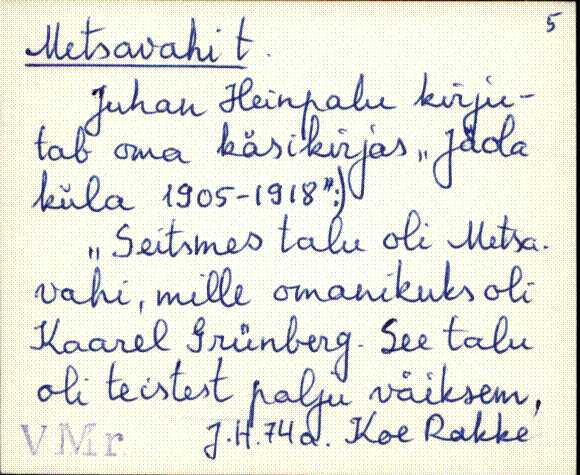 5
Metsavahi t.
Juhan Heinpalu kirju-
tab oma käsikirjas „Jäola
küla 1905-1918":)
„Seitsmes talu oli Metsa-
vahi, mille omanikuks oli
Kaarel Grünberg. See talu
oli teistest palju väiksem,
VMr J.H.74a. Koe Rakke